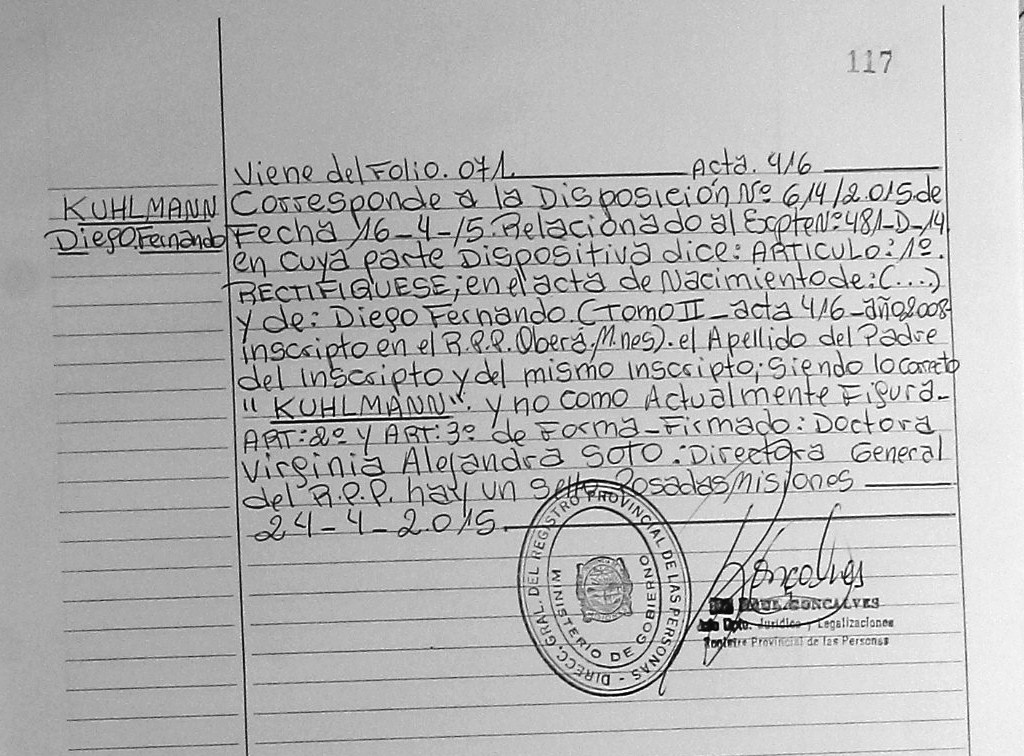 117
Viene del Folio. 071. Acta. 416
KUHLMANN
Diego Fernando
Corresponde a la Disposición Nº 614/2.015.de
Fecha 16-4-15. Relacionado al ExpteNº:481-D-14
en cuya parte Dispositiva dice: ARTICULO:1º.
RECTIFIQUESE; en el acta de Nacimiento de: (....)
y de: Diego Fernando. (Tomo II - acta 416 - año 2008-
inscripto en el R.P.P. Oberá. M.nes). el Apellido del Padre
del inscripto y del mismo inscripto; Siendo lo correcto
"KUHLMANN". y no como Actualmente Figura-
ART:2º y ART:3º de Forma-Firmado: Doctora
Virginia Alejandra Soto. Directora General
del R.P.P. hay un Sello Posadas Misiones
24-4-2.015.
DIRECC. GRAL. DEL REGISTRO PROVINCIAL DE LAS PERSONAS -
MINISTERIO DE GOBIERNO
Gonçalves
GONCALVES
Jefe Dpto. Jurídico y Legalizaciones
Registro Provincial de las Personas